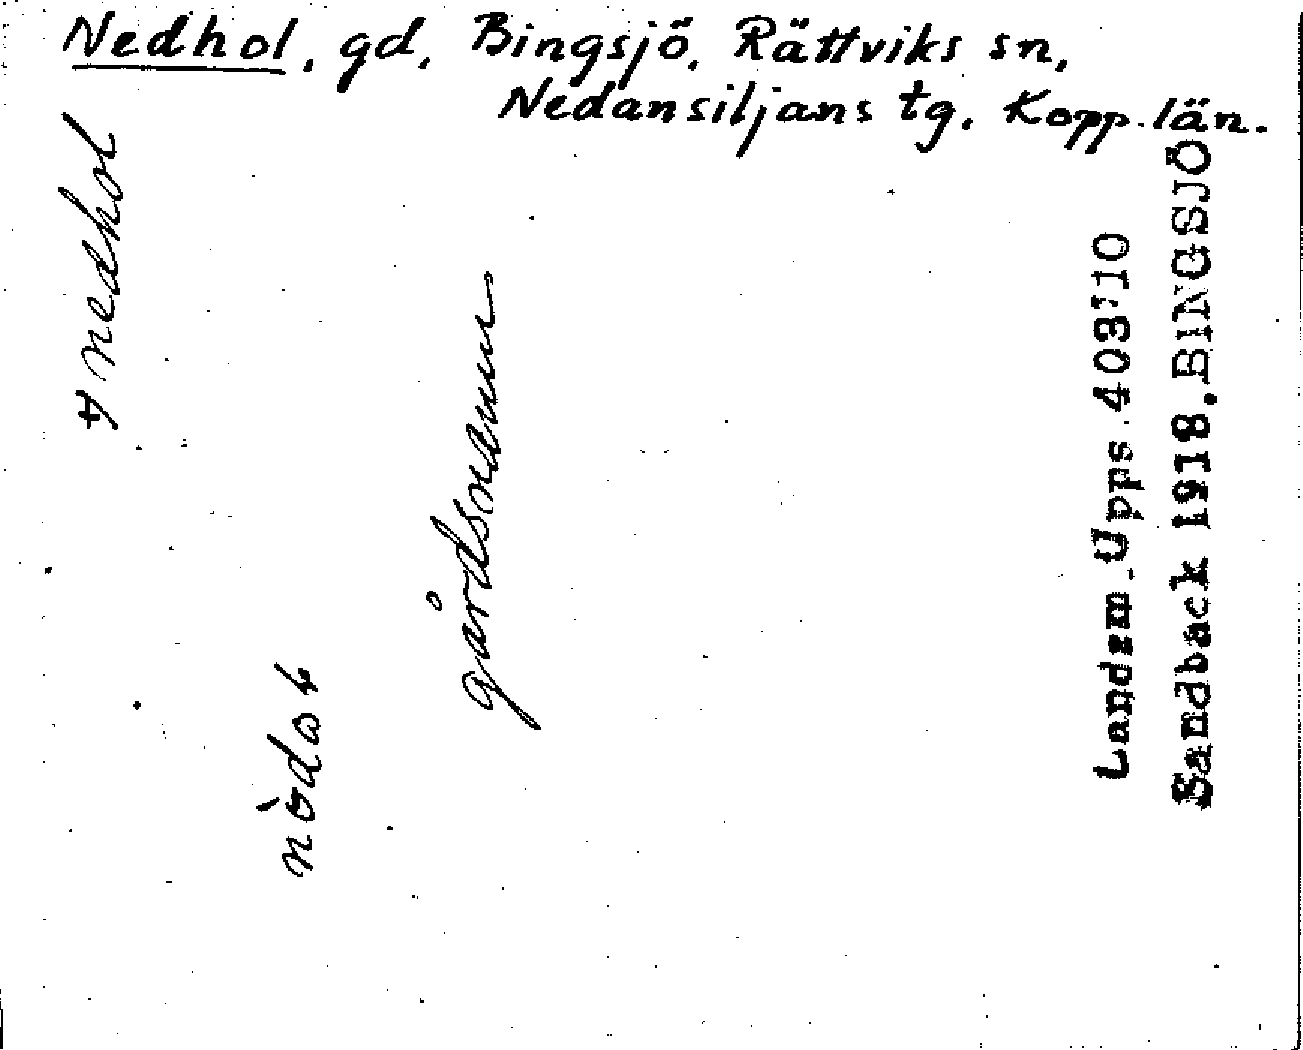 Nedhol, gd, Bingsjö, Rättviks sn,
Nedansiljans tg. Kopp. län.
nedhol
gårdsnamn
Landsm. Upps. 403:10
Sandback 1918. BINGSJÖ